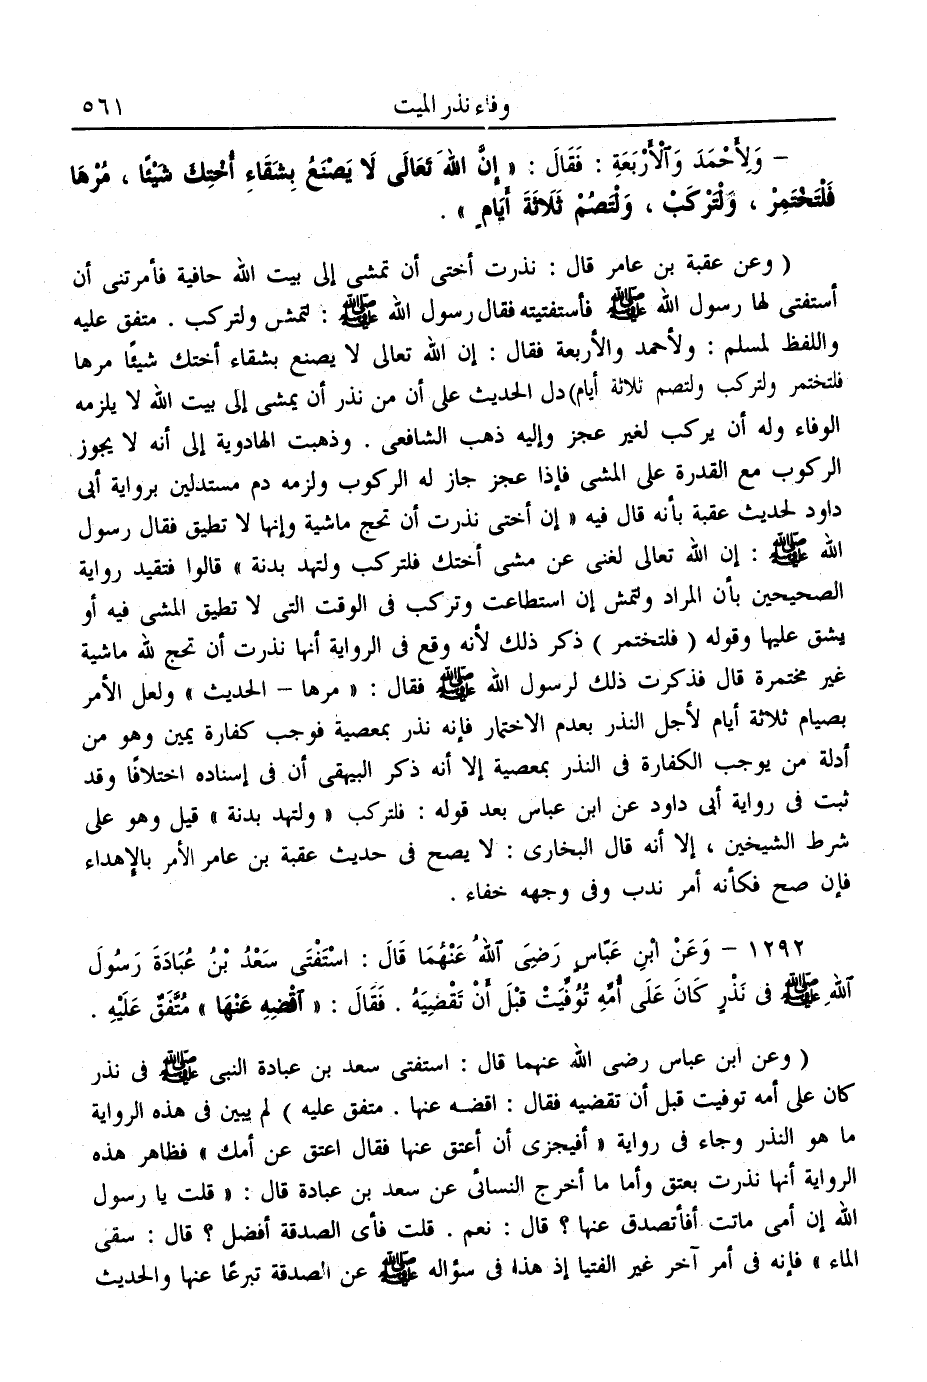 وفاء نذر الميت ٥٦١
– وَلِأَحْمَدَ وَٱلْأَرْبَعَةِ : فَقَالَ : « إِنَّ اللهَ تَعَالَى لَا يَصْنَعُ بِشَقَاءِ أُخْتِكَ شَيْئًا ، مُرْهَا
فَلْتَخْتَمِرْ ، وَلْتَرْكَبْ ، وَلْتَصُمْ ثَلَاثَةَ أَيَّامٍ » .
( وعن عقبة بن عامر قال : نذرت أختى أن تمشى إلى بيت الله حافية فأمرتنى أن
أستفتى لها رسول الله ﷺ فأستفتيته فقال رسول الله ﷺ : لتمش ولتركب . متفق عليه
واللفظ لمسلم : ولأحمد والأربعة فقال : إن الله تعالى لا يصنع بشقاء أختك شيئًا مرها
فلتختمر ولتركب ولتصم ثلاثة أيام) دل الحديث على أن من نذر أن يمشى إلى بيت الله لا يلزمه
الوفاء وله أن يركب لغير عجز وإليه ذهب الشافعى . وذهبت الهادوية إلى أنه لا يجوز
الركوب مع القدرة على المشى فإذا عجز جاز له الركوب ولزمه دم مستدلين برواية أبى
داود لحديث عقبة بأنه قال فيه « إن أختى نذرت أن تحج ماشية وإنها لا تطيق فقال رسول
الله ﷺ : إن الله تعالى لغنى عن مشى أختك فلتركب ولتهد بدنة » قالوا فتقيد رواية
الصحيحين بأن المراد ولتمش إن استطاعت وتركب فى الوقت التى لا تطيق المشى فيه أو
يشق عليها وقوله ( فلتختمر ) ذكر ذلك لأنه وقع فى الرواية أنها نذرت أن تحج لله ماشية
غير مختمرة قال فذكرت ذلك لرسول الله ﷺ فقال : « مرها – الحديث » ولعل الأمر
بصيام ثلاثة أيام لأجل النذر بعدم الاختمار فإنه نذر بمعصية فوجب كفارة يمين وهو من
أدلة من يوجب الكفارة فى النذر بمعصية إلا أنه ذكر البيهقى أن فى إسناده اختلافًا وقد
ثبت فى رواية أبى داود عن ابن عباس بعد قوله : فلتركب « ولتهد بدنة » قيل وهو على
شرط الشيخين ، إلا أنه قال البخارى : لا يصح فى حديث عقبة بن عامر الأمر بالإهداء
فإن صح فكأنه أمر ندب وفى وجهه خفاء .
١٢٩٢ – وَعَنْ ابْنِ عَبَّاسٍ رَضِىَ ٱللهُ عَنْهُمَا قَالَ : اسْتَفْتَى سَعْدُ بْنُ عُبَادَةَ رَسُولَ
ٱللهِ ﷺ فِى نَذْرٍ كَانَ عَلَى أُمِّهِ تُوُفِّيَتْ قَبْلَ أَنْ تَقْضِيَهُ . فَقَالَ : « ٱقْضِهِ عَنْهَا » مُتَّفَقٌ عَلَيْهِ .
( وعن ابن عباس رضى الله عنهما قال : استفتى سعد بن عبادة النبى ﷺ فى نذر
كان على أمه توفيت قبل أن تقضيه فقال : اقضه عنها . متفق عليه ) لم يبين فى هذه الرواية
ما هو النذر وجاء فى رواية « أفيجزى أن أعتق عنها فقال اعتق عن أمك » فظاهر هذه
الرواية أنها نذرت بعتق وأما ما أخرج النسائى عن سعد بن عبادة قال : « قلت يا رسول
الله إن أمى ماتت أفأتصدق عنها ؟ قال : نعم . قلت فأى الصدقة أفضل ؟ قال : سقى
الماء » فإنه فى أمر آخر غير الفتيا إذ هذا فى سؤاله ﷺ عن الصدقة تبرعًا عنها والحديث